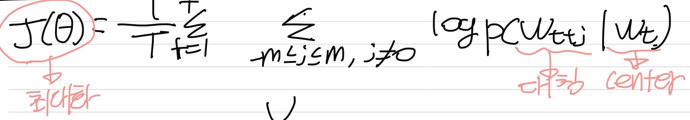 J(θ) = 1/T Σ_{t=1}^{T} Σ_{-m≤j≤m, j≠0} log p(w_{t+j} | w_t)
최대화 center